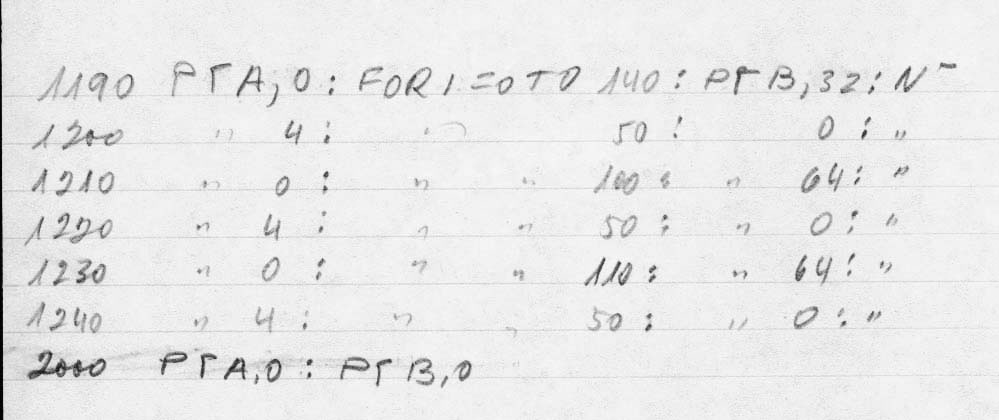 1190 PΓA,0 : FOR I=0 TO 140 : PΓB,32 : N-
1200 " 4 : " 50 : 0 : "
1210 " 0 : " " 100 : " 64 : "
1220 " 4 : " " 50 : " 0 : "
1230 " 0 : " " 110 : " 64 : "
1240 " 4 : " " 50 : " 0 : "
2000 PΓA,0 : PΓB,0